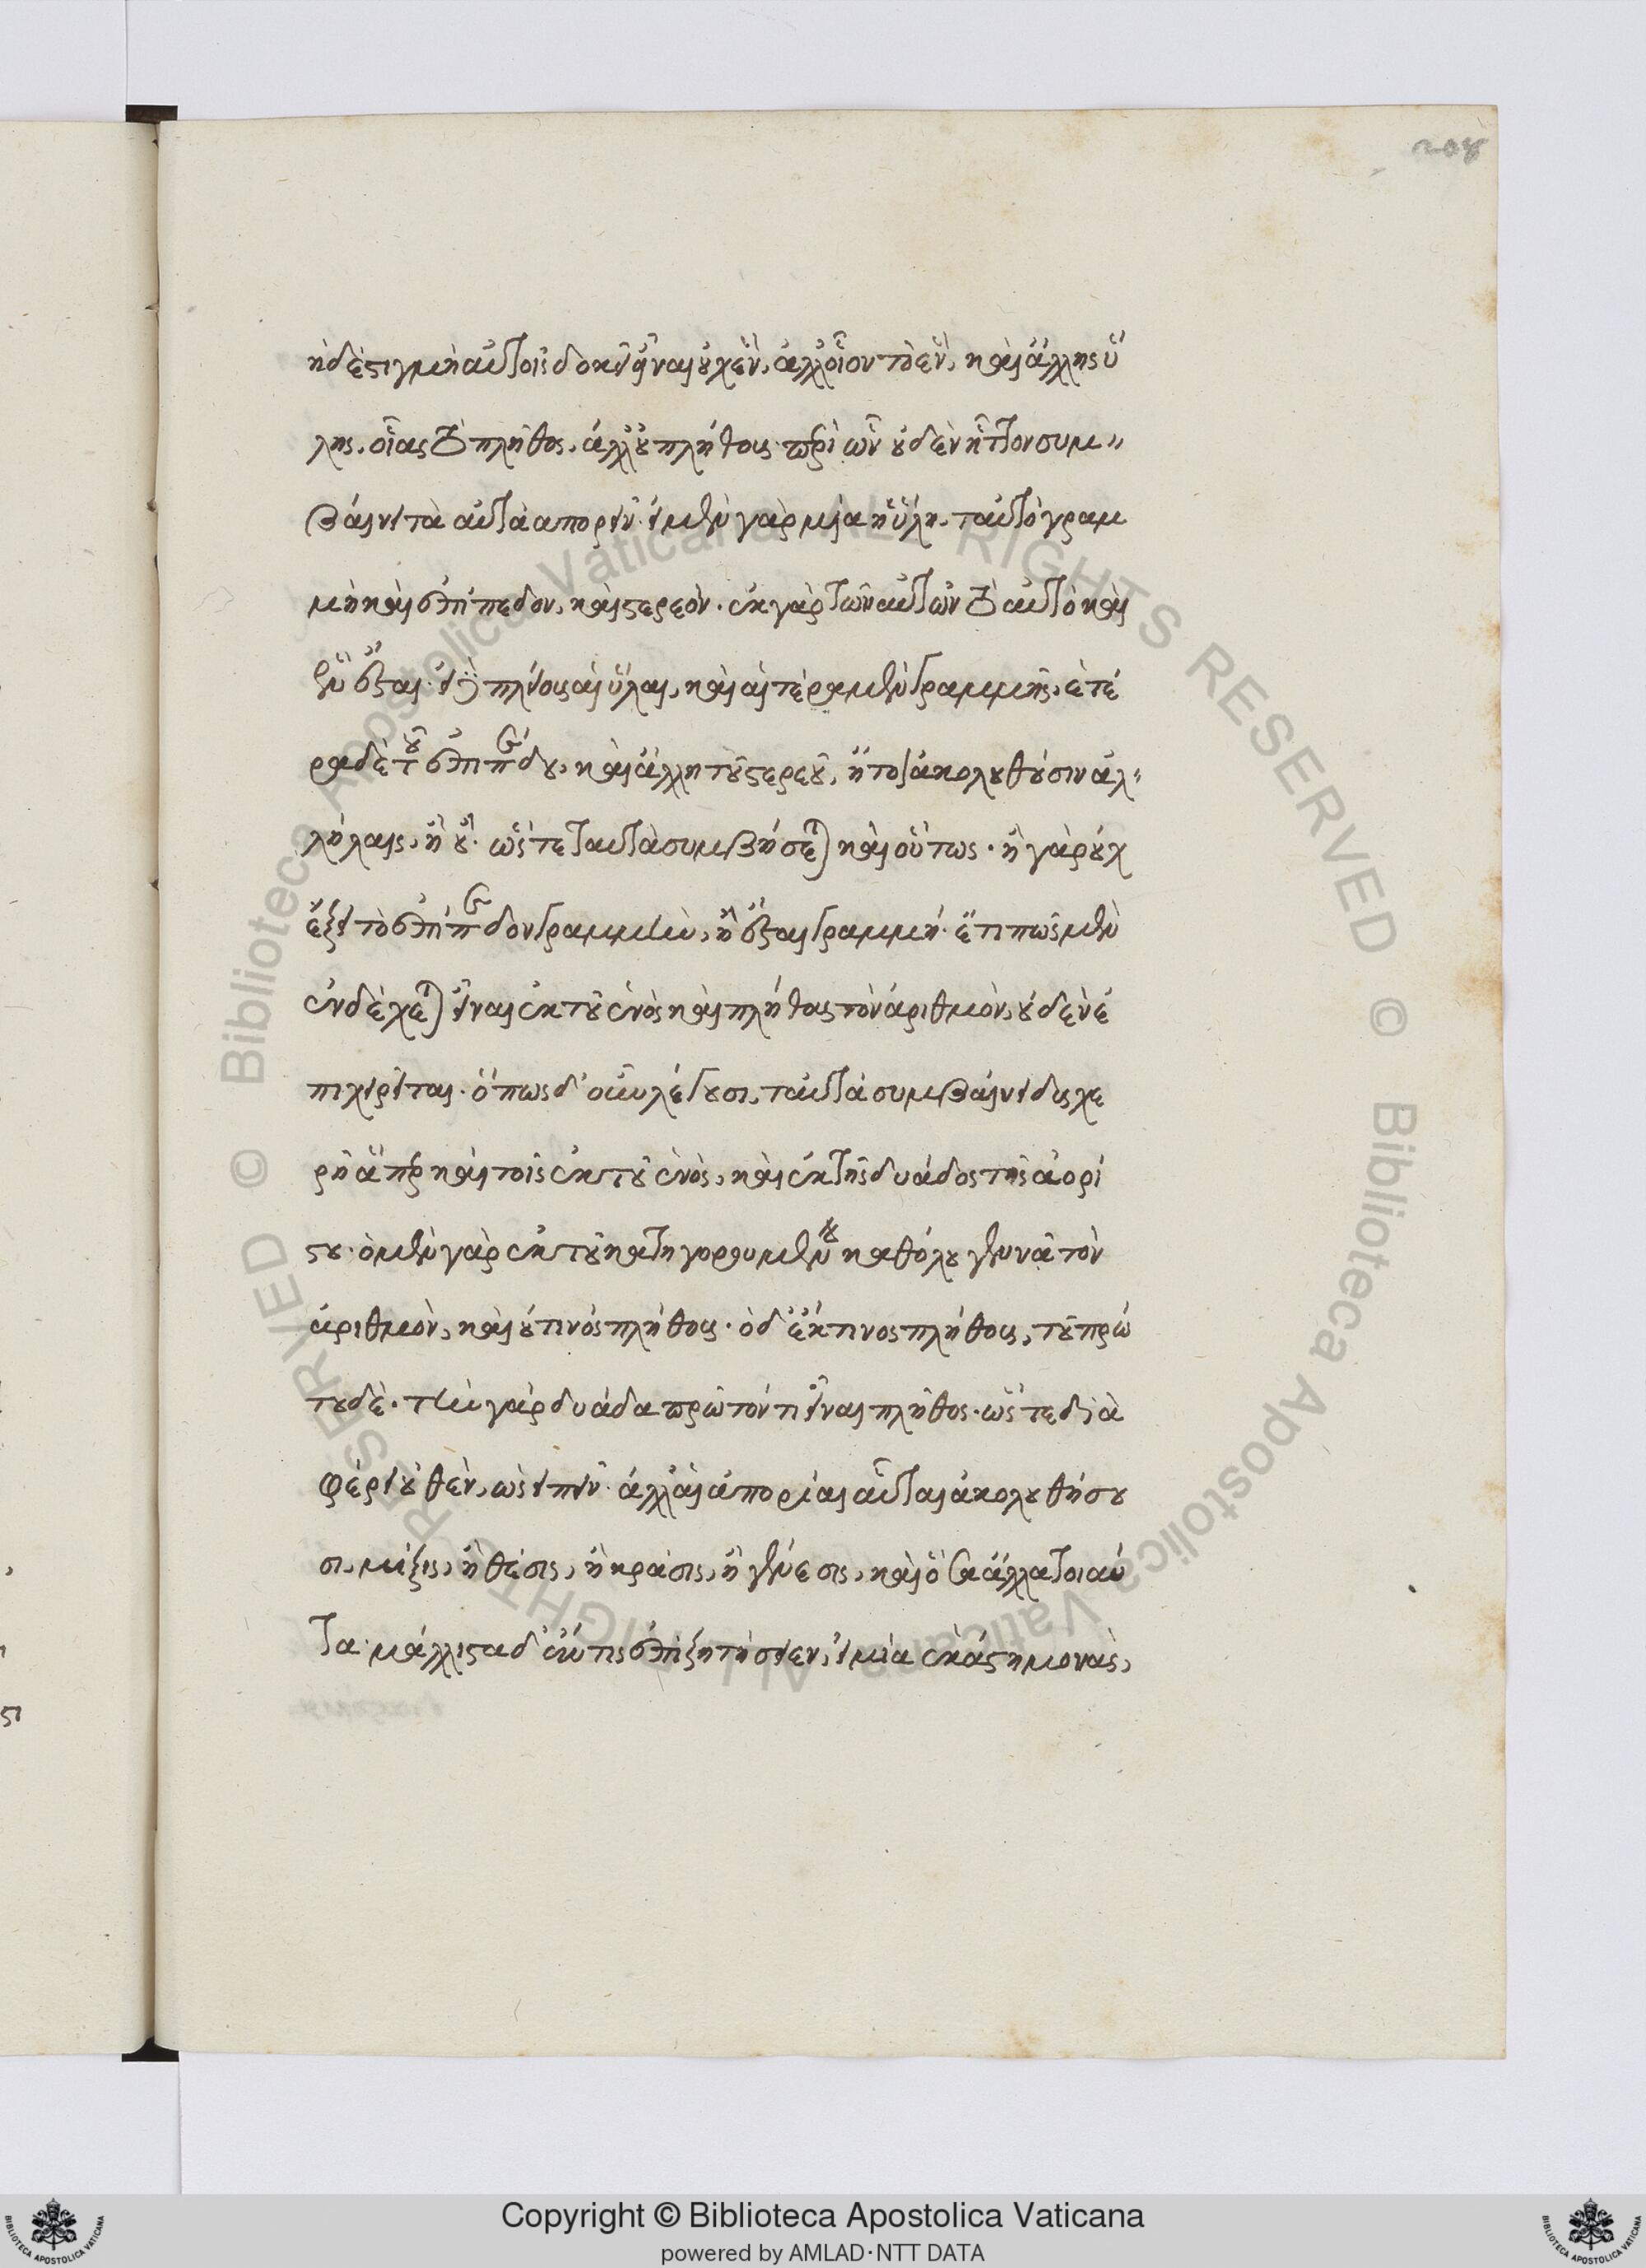 208
ἡ δὲ στιγμὴ αὐτοῖς δοκεῖ εἶναι οὐχ ἓν, ἀλλ' οἷον τὸ ἓν, καὶ ἄλλης ὕ
λης, οἵας τὸ πλῆθος, ἀλλ' οὐ πλήθους· περὶ ὧν οὐδὲν ἧττον συμ
βαίνει τὰ αὐτὰ ἀπορεῖν· εἰ μὲν γὰρ μία ἡ ὕλη, ταὐτὸ γραμ
μὴ καὶ ἐπίπεδον, καὶ στερεόν· ἐκ γὰρ τῶν αὐτῶν τὸ αὐτὸ καὶ
ἓν ἔσται· εἰ δὲ πλείους αἱ ὗλαι, καὶ αἱ τέρα μὲν γραμμῆς, ἑτέ
ρα δὲ τοῦ ἐπιπέδου, καὶ ἄλλη τοῦ στερεοῦ, ἤτοι ἀκολουθοῦσιν ἀλ
λήλαις, ἢ οὔ· ὥστε ταυτὰ συμβήσεται καὶ οὕτως· ἢ γὰρ οὐχ
ἕξει τὸ ἐπίπεδον γραμμὴν, ἢ ἔσται γραμμή· ἔτι πῶς μὲν
ἐνδέχεται εἶναι ἐκ τοῦ ἑνὸς καὶ πλήθους τὸν ἀριθμὸν, οὐδὲν ἐ
πιχειρεῖται· ὅπως δ' οὖν λέγουσι, ταὐτὰ συμβαίνει δυσχε
ρῆ ἅπερ καὶ τοῖς ἐκ τοῦ ἑνὸς, καὶ ἐκ τῆς δυάδος τῆς ἀορί
στου· ὁ μὲν γὰρ ἐκ τοῦ κατηγορουμένου καθόλου γεννᾶ τὸν
ἀριθμὸν, καὶ οὐ τινὸς πλήθους· ὁ δ' ἔκ τινος πλήθους, τοῦ πρώ
του δὲ· τὴν γὰρ δυάδα πρῶτόν τι εἶναι πλῆθος· ὥστε δια
φέρει οὐθὲν, ὡς εἰπεῖν· ἀλλ' αἱ ἀπορίαι αὗται ἀκολουθήσου
σι, μίξις, ἢ θέσις, ἢ κρᾶσις, ἢ γένεσις, καὶ ὅσα ἄλλα τοιαῦ
τα· μάλλιστα δ' ἄν τις ἐπιζητήσειεν, εἰ μία ἑκάστη μονὰς,
Copyright © Biblioteca Apostolica Vaticana
powered by AMLAD·NTT DATA